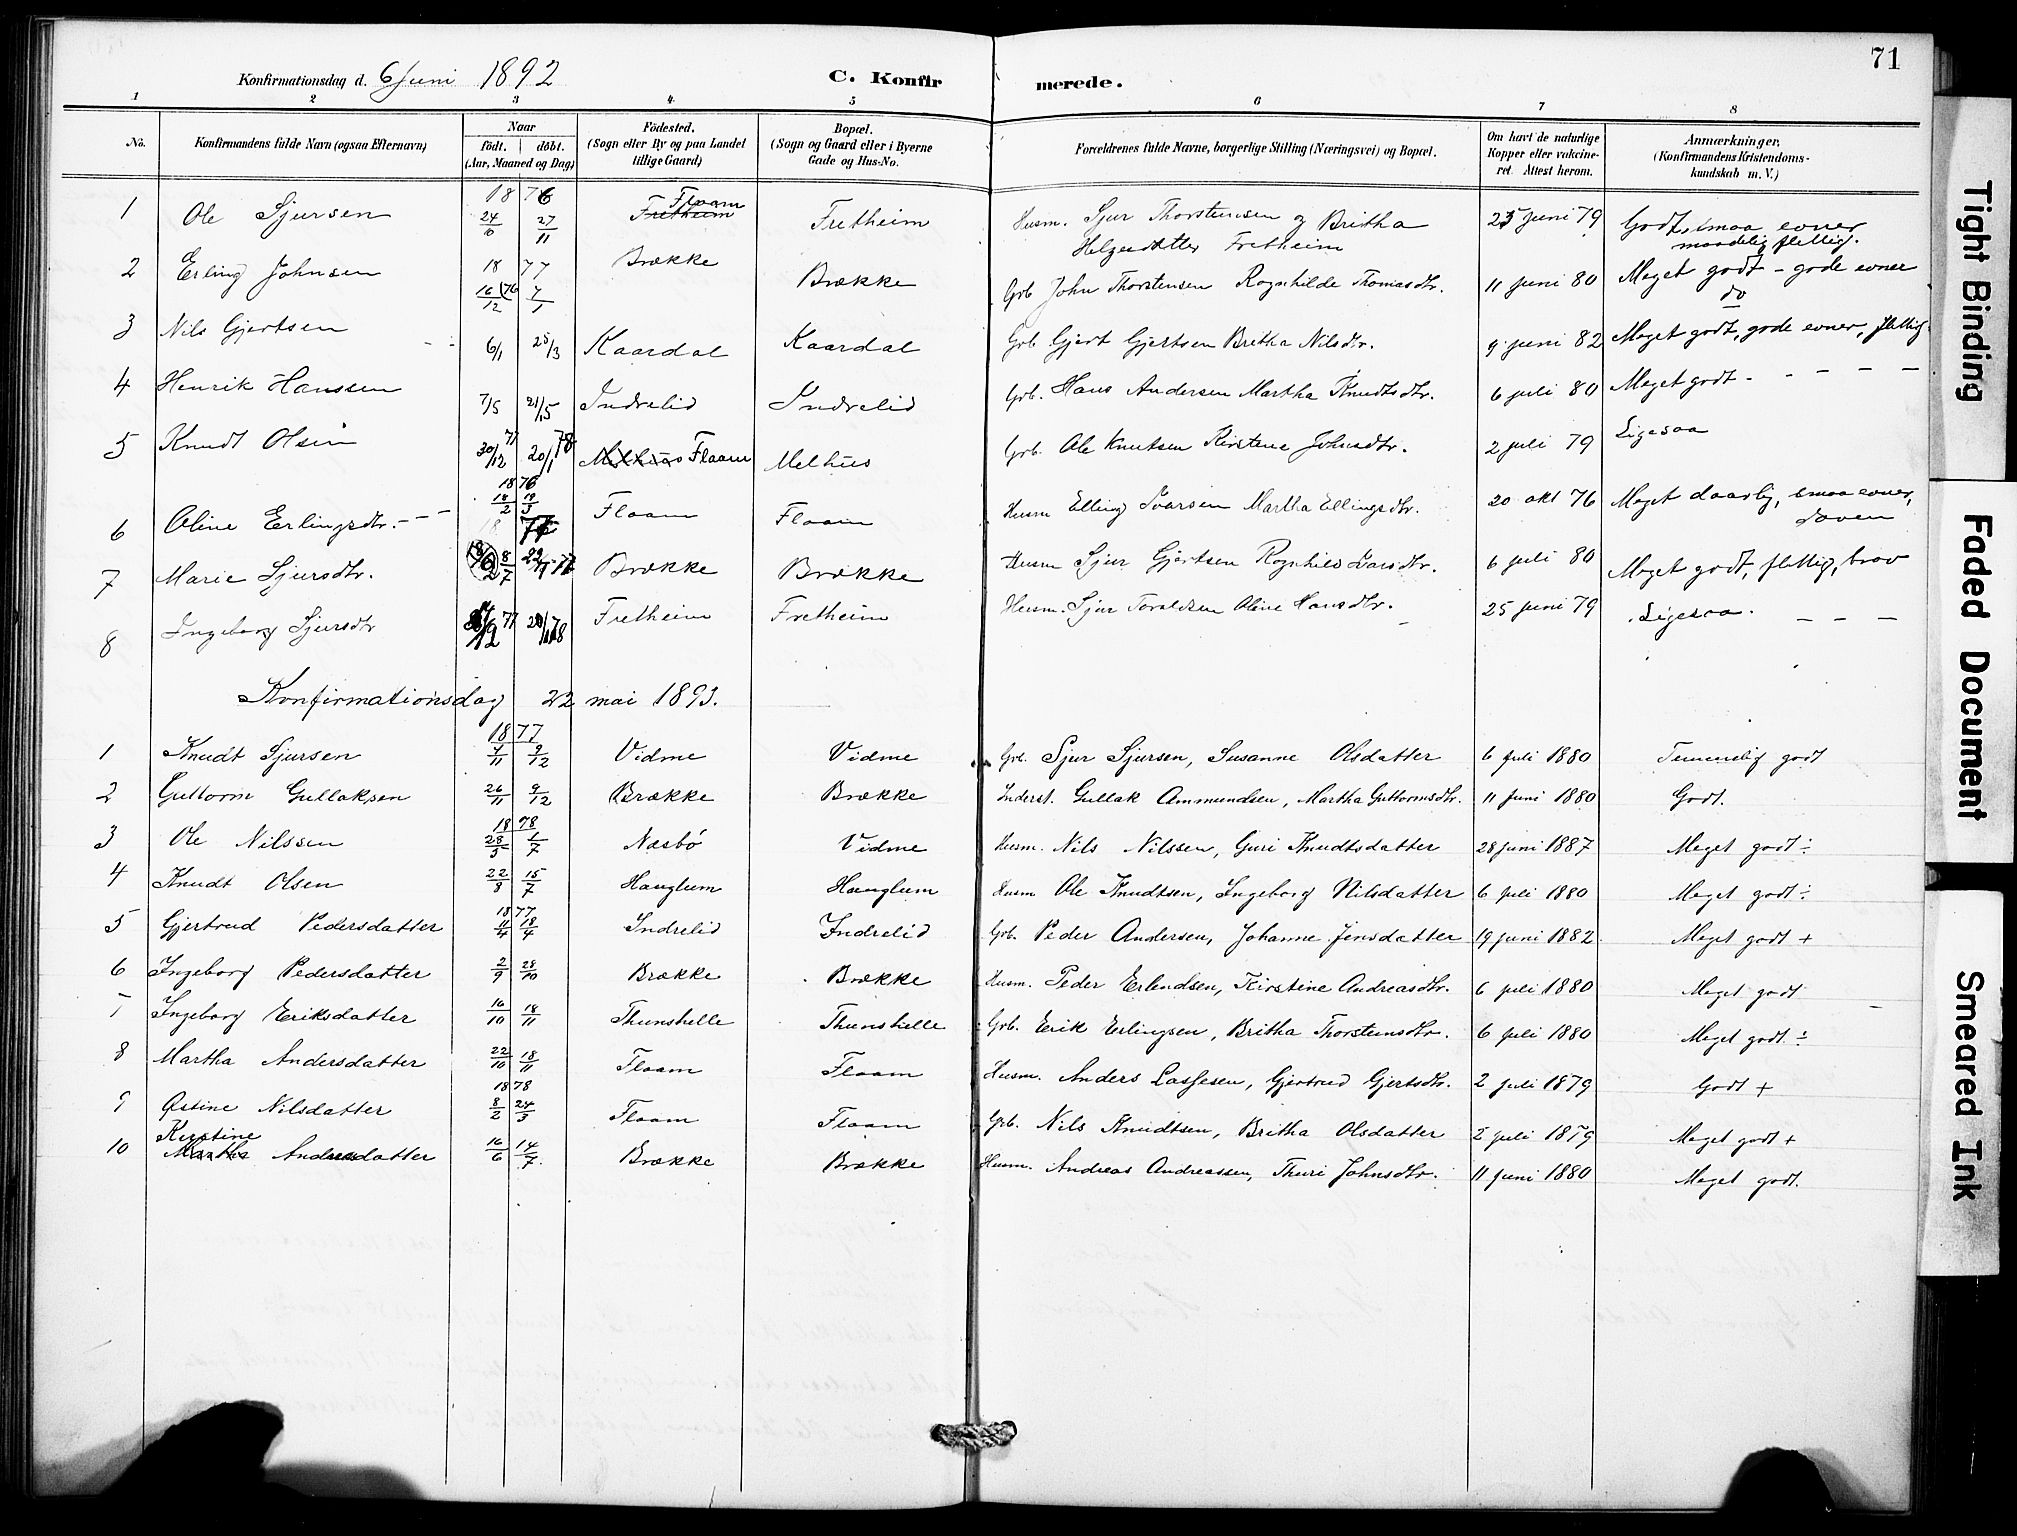 71
Konfirmationsdag d. 6 Juni 1892
C. Konfirmerede.
1 2 3 4 5 6 7 8
No. Konfirmandens fulde Navn (ogsaa Efternavn) Naar født. døbt. (Aar, Maaned og Dag) Fødested. (Sogn eller By og paa Landet tillige Gaard) Bopæl. (Sogn og Gaard eller i Byerne Gade og Hus-No. Forældrenes fulde Navne, borgerlige Stilling (Næringsvei) og Bopæl. Om havt de naturlige Kopper eller vakcineret. Attest herom. Anmærkninger, (Konfirmandens Kristendomskundskab m. V.)
1 Ole Sjursen 1876 24/10 27/11 Fretheim Flaam Fretheim Husm. Sjur Thorstensen og Britha Helgesdatter Fretheim 25 Juni 79 Godt, smaa evner maadelig flittig.
2 Erling Johnsen 1877 16/12 76 7/1 Brække Brække Grb John Thorstensen Rognhilde Thomasdtr. 11 juni 80 Meget godt - gode evner do
3 Nils Gjertsen - - 6/1 25/3 Kaardal Kaardal Grb Gjert Gjertsen Britha Nilsdtr. 9 juni 82 Meget godt, gode evner, flittig.
4 Henrik Hanssen 7/5 21/5 Indrelid Indrelid Grb. Hans Andersen Martha Knudtsdtr. 6 juli 80 Meget godt - - - - -
5 Knudt Olsen 30/12 77 20/1 78 Melhuus Flaam Melhus Grb. Ole Knutsen Kirstene Johnsdtr. 2 juli 79 Ligesaa
6 Oline Erlingsdtr. - - 1876 18/2 19/3 Flaam Flaam Husm Elling Ivarsen Martha Ellingsdtr. 20 okt 76 Meget daarlig, smaa evner, doven
7 Marie Sjursdtr. 8/7 Brække Brække Husm Sjur Gjertsen Rognhild Larsdtr. 6 juli 80 Meget godt, flittig, brav
8 Ingeborg Sjursdtr 77 78 Fretheim Fretheim Husm. Sjur Toraldsen Oline Hansdtr. 25 juni 79 Ligesaa. - - -
Konfirmationsdag 22 mai 1893.
1 Knudt Sjursen 1877 4/11 9/12 Vidme Vidme Grb. Sjur Sjursen, Susanne Olsdatter 6 juli 1880 Temmelig godt
2 Guttorm Gullaksen 26/11 9/12 Brække Brække Inderst. Gullak Ammundsen, Martha Guttormsdtr. 11 juni 1880 Godt.
3 Ole Nilssen 1878 28/5 1/7 Næsbö Vidme Husm. Nils Nilssen, Guri Knudtsdatter 28 juni 1887 Meget godt ÷
4 Knudt Olsen 22/8 15/7 Hauglum Hauglum Husm Ole Knudtsen, Ingeborg Nilsdatter 6 juli 1880 Meget godt ÷
5 Gjertrud Pedersdatter 1877 11/4 18/4 Indrelid Indrelid Grb. Peder Andersen, Johanne Jensdatter 19 juni 1882. Meget godt +
6 Ingeborg Pedersdatter 2/9 28/10 Brække Brække Husm. Peder Erlendsen, Kirstine Andreasdtr. 6 juli 1880 Meget godt
7 Ingeborg Eriksdatter 16/10 18/11 Thunshelle Thunshelle Grb. Erik Erlingsen, Britha Thorsteinsdtr. 6 juli 1880 Meget godt ÷
8 Martha Andersdatter 22/10 18/11 Flaam Flaam Husm. Anders Lassesen, Gjertrud Gjertsdtr. 2 juli 1879 Godt +
9 Østine Nilsdatter 1878 8/2 24/3 Flaam Flaam Grb. Nils Knudtsen, Britha Olsdatter 2 juli 1879 Meget godt +
10 Kirstine Martha Andreasdatter 16/6 14/7 Brække Brække Husm. Andreas Andreassen, Thuri Johnsdtr. 11 juni 1880 Meget godt.
Tight Binding
Faded Document
Smeared Ink